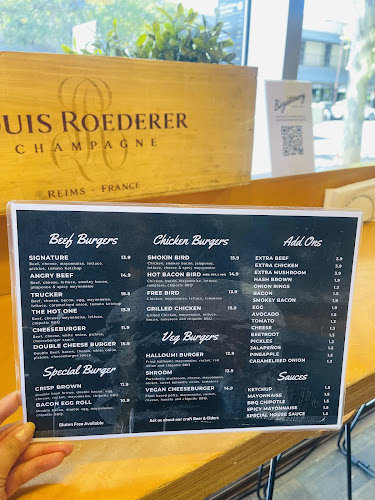 UIS ROEDERER
CHAMPAGNE
REIMS - FRANCE
Beef Burgers
SIGNATURE 13.9
Beef, cheese, mayonnaise, lettuce,
pickles, tomato ketchup
ANGRY BEEF 14.9
Beef, cheese, lettuce, smokey bacon,
jalapenos & spicy mayonnaise
TRUCKER 15.9
Beef, cheese, bacon, egg, mayonnaise,
lettuce, caramelised onion, tomato ketchup
THE HOT ONE 13.9
Beef, cheese, mayonnaise,
lettuce, chipotle BBQ
CHEESEBURGER 11.9
Beef, cheese, white onion, pickles,
cheeseburger sauce
DOUBLE CHEESE BURGER 15.9
Double beef, bacon, cheese, white onion,
pickles, cheeseburger sauce
Special Burger
CRISP BROWN 11.9
Double hash brown, double bacon, egg,
cheese, mayonnaise, chipotle BBQ
BACON EGG ROLL 10.9
Double bacon, double egg, mayonnaise,
chipotle BBQ
Gluten Free Available
Chicken Burgers
SMOKIN BIRD 15.9
Chicken, smokey bacon, jalapenos,
lettuce, cheese & spicy mayonnaise
HOT BACON BIRD 14.9
Chicken, bacon, mayonnaise, lettuce,
tomatoes, chipotle BBQ
FREE BIRD 13.9
Chicken, mayonnaise, lettuce, tomatoes
GRILLED CHICKEN 13.9
Grilled Chicken, mayonnaise, lettuce,
bacon, tomatoes, chipotle BBQ
Veg Burgers
HALLOUMI BURGER 13.9
Fried halloumi, mayonnaise, rocket, red
onion and chipotle BBQ
SHROOM 13.9
Portobello mushroom, cheese, mayonnaise,
rocket, sweet balsamic onion, tomatoes
VEGAN CHEESEBURGER 14.9
Plant based patty, mayonnaise, rocket,
cheese, tomato and chipotle BBQ
Ask us about our craft Beer & Ciders
Add Ons
EXTRA BEEF
EXTRA CHICKEN
EXTRA MUSHROOM
HASH BROWN
ONION RINGS
BACON
SMOKEY BACON
EGG
AVOCADO
TOMATO
CHEESE
BEETROOT
PICKLES
JALAPEÑOS
PINEAPPLE
CARAMELISED ONION
Sauces
KETCHUP 1.5
MAYONNAISE 1.5
BBQ CHIPOTLE 1.5
SPICY MAYONNAISE 1.5
SPECIAL HOUSE SAUCE 1.5